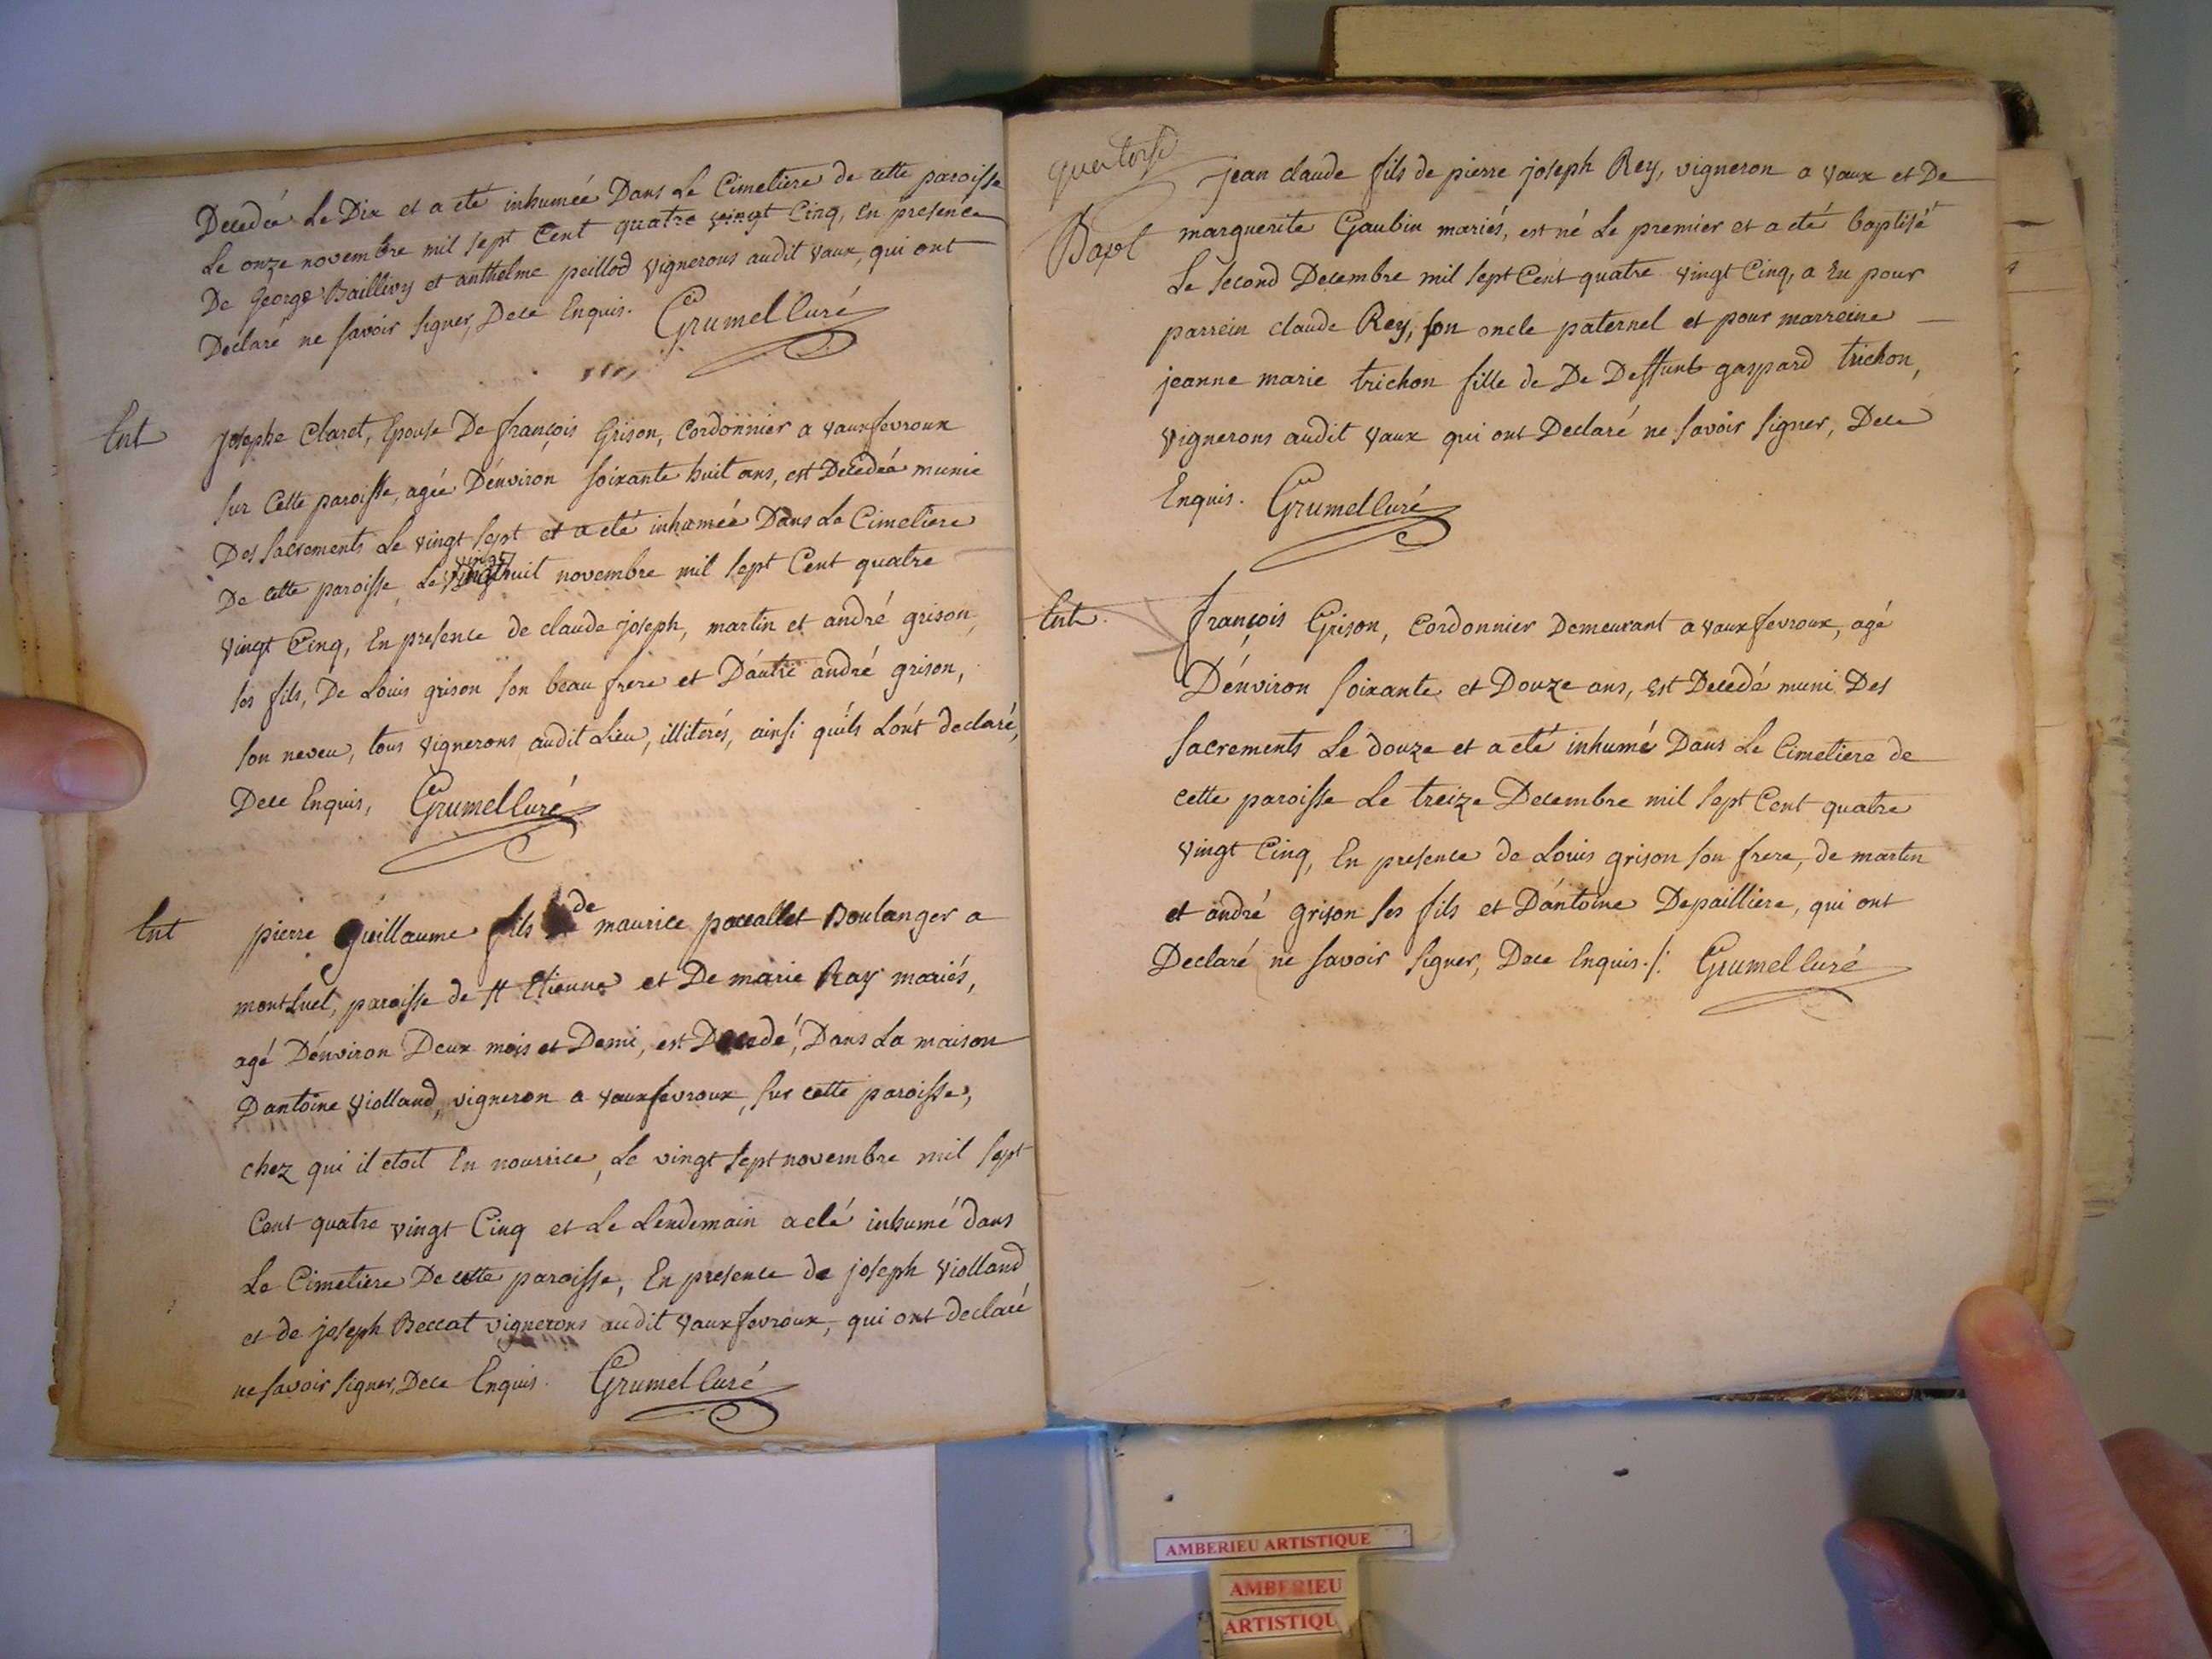 Decedée Le Dix et a eté inhumée Dans Le Cimetiere de cette paroisse
Le onze novembre mil sept Cent quatre vingt Cinq, En presence
De George Baillivy et anthelme peillod vignerons audit vaux, qui ont
Declaré ne savoir signer, Dece Enquis. Grumel Curé
Ent
josephe Claret, Epouse De françois Grison, Cordonnier a vauxfevroux
sur Cette paroisse, agée D'environ soixante huit ans, est Decedéé munie
Des sacrements Le vingt sept et a eté inhumée Dans Le Cimetiere
De cette paroisse, Le vingt huit novembre mil sept Cent quatre
vingt Cinq, En presence de claude joseph, martin et andré grison,
ses fils, De Louis grison son beau frere et D'autre andré grison,
son neveu, tous vignerons audit Lieu, illiterés, ainsi qu'ils L'ont declaré,
Dece Enquis, Grumel Curé
Ent
pierre guillaume fils de maurice paccallet Boulanger a
montluel, paroisse de st Etienne et De marie Ray mariés,
agé D'environ Deux mois et Demi, est Decedé, Dans La maison
D'antoine Violland, vigneron a vauxfevroux, sur cette paroisse,
chez qui il etoit En nourrice, Le vingt sept novembre mil sept
Cent quatre vingt Cinq et Le Lendemain a eté inhumé dans
Le Cimetiere De cette paroisse, En presence de joseph Violland
et de joseph Beccat vignerons audit vauxfevroux, qui ont declaré
ne savoir signer, Dece Enquis. Grumel Curé
quatorse
Bapt
jean claude fils de pierre joseph Rey, vigneron a vaux et De
marguerite Gaubin mariés, est né Le premier et a eté baptisé
Le second Decembre mil sept Cent quatre vingt Cinq, a Eu pour
parrein claude Rey, son oncle paternel et pour marreine
jeanne marie trichon fille de De Deffunt gaspard trichon,
vignerons audit vaux qui ont Declaré ne savoir signer, Dece
Enquis. Grumel Curé
Ent.
françois Grison, Cordonnier Demeurant a vauxfevroux, agé
D'environ soixante et Douze ans, est Decedé muni Des
sacrements Le douze et a eté inhumé Dans Le Cimetiere de
cette paroisse Le treize Decembre mil sept Cent quatre
vingt Cinq, En presence de Louis grison son frere, de martin
et andré grison ses fils et D'antoine Depailliere, qui ont
Declaré ne savoir signer, Dece Enquis./: Grumel Curé
AMBERIEU ARTISTIQUE
AMBERIEU
ARTISTIQU